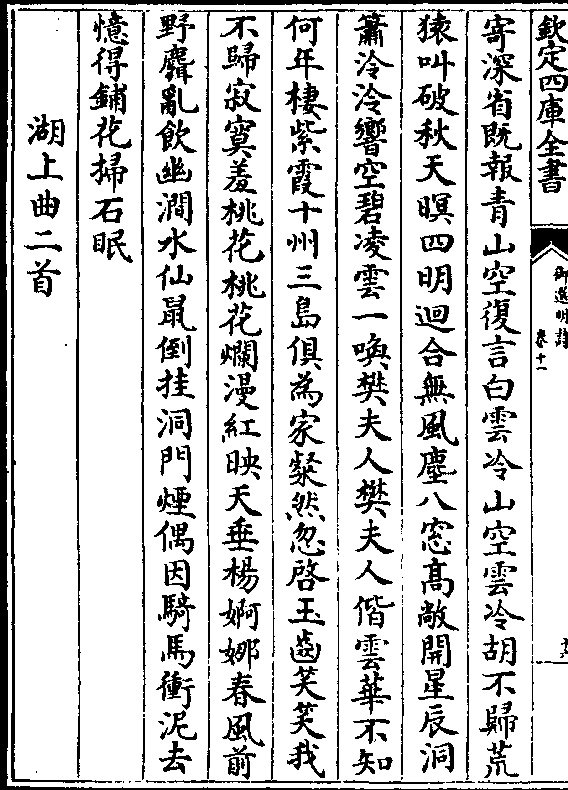 欽定四庫全書
御選明詩
卷十一
寄深省既報青山空復言白雲冷山空雲冷胡不歸荒
猿叫破秋天暝四明迴合無風塵八窓髙敞開星辰洞
簫泠泠響空碧凌雲一喚樊夫人樊夫人偕雲華不知
何年棲紫霞十州三島俱為家粲然忽啓玉齒笑笑我
不歸寂寞羞桃花桃花爛漫紅映天垂楊婀娜春風前
野麏亂飲幽澗水仙鼠倒挂洞門煙偶因騎馬衝泥去
憶得鋪花掃石眠
湖上曲二首